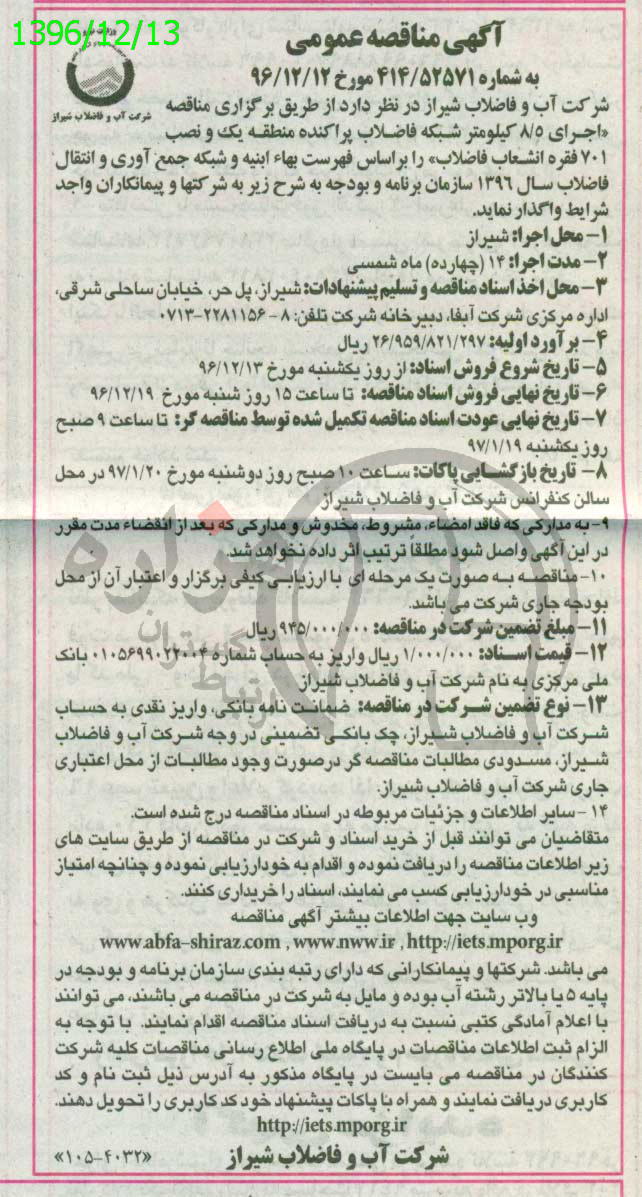 1396/12/13
آگهی مناقصه عمومی
به شماره ۴۱۴/۵۲۵۷۱ مورخ ۹۶/۱۲/۱۲
شرکت آب و فاضلاب شیراز
شرکت آب و فاضلاب شیراز در نظر دارد از طریق برگزاری مناقصه
«اجرای ۸/۵ کیلومتر شبکه فاضلاب پراکنده منطقه یک و نصب
۷۰۱ فقره انشعاب فاضلاب» را براساس فهرست بهاء ابنیه و شبکه جمع آوری و انتقال
فاضلاب سال ۱۳۹۶ سازمان برنامه و بودجه به شرح زیر به شرکتها و پیمانکاران واجد
شرایط واگذار نماید.
۱- محل اجرا: شیراز
۲- مدت اجرا: ۱۴ (چهارده) ماه شمسی
۳- محل اخذ اسناد مناقصه و تسلیم پیشنهادات: شیراز، پل حر، خیابان ساحلی شرقی،
اداره مرکزی شرکت آبفا، دبیرخانه شرکت تلفن: ۸ - ۲۲۸۱۱۵۶-۰۷۱۳
۴- برآورد اولیه: ۲۶/۹۵۹/۸۲۱/۲۹۷ ریال
۵- تاریخ شروع فروش اسناد: از روز یکشنبه مورخ ۹۶/۱۲/۱۳
۶- تاریخ نهایی فروش اسناد مناقصه: تا ساعت ۱۵ روز شنبه مورخ ۹۶/۱۲/۱۹
۷- تاریخ نهایی عودت اسناد مناقصه تکمیل شده توسط مناقصه گر: تا ساعت ۹ صبح
روز یکشنبه ۹۷/۱/۱۹
۸- تاریخ بازگشایی پاکات: ساعت ۱۰ صبح روز دوشنبه مورخ ۹۷/۱/۲۰ در محل
سالن کنفرانس شرکت آب و فاضلاب شیراز
۹- به مدارکی که فاقد امضاء، مشروط، مخدوش و مدارکی که بعد از انقضاء مدت مقرر
در این آگهی واصل شود مطلقاً ترتیب اثر داده نخواهد شد.
۱۰- مناقصه به صورت یک مرحله ای با ارزیابی کیفی برگزار و اعتبار آن از محل
بودجه جاری شرکت می باشد.
۱۱- مبلغ تضمین شرکت در مناقصه: ۹۴۵/۰۰۰/۰۰۰ ریال
۱۲- قیمت اسناد: ۱/۰۰۰/۰۰۰ ریال واریز به حساب شماره ۰۱۰۵۶۹۹۰۲۲۰۰۴ بانک
ملی مرکزی به نام شرکت آب و فاضلاب شیراز
۱۳- نوع تضمین شرکت در مناقصه: ضمانت نامه بانکی، واریز نقدی به حساب
شرکت آب و فاضلاب شیراز، چک بانکی تضمینی در وجه شرکت آب و فاضلاب
شیراز، مسدودی مطالبات مناقصه گر درصورت وجود مطالبات از محل اعتباری
جاری شرکت آب و فاضلاب شیراز.
۱۴ - سایر اطلاعات و جزئیات مربوطه در اسناد مناقصه درج شده است.
متقاضیان می توانند قبل از خرید اسناد و شرکت در مناقصه از طریق سایت های
زیر اطلاعات مناقصه را دریافت نموده و اقدام به خودارزیابی نموده و چنانچه امتیاز
مناسبی در خودارزیابی کسب می نمایند، اسناد را خریداری کنند.
وب سایت جهت اطلاعات بیشتر آگهی مناقصه
www.abfa-shiraz.com , www.nww.ir , http://iets.mporg.ir
می باشد. شرکتها و پیمانکارانی که دارای رتبه بندی سازمان برنامه و بودجه در
پایه ۵ یا بالاتر رشته آب بوده و مایل به شرکت در مناقصه می باشند، می توانند
با اعلام آمادگی کتبی نسبت به دریافت اسناد مناقصه اقدام نمایند. با توجه به
الزام ثبت اطلاعات مناقصات در پایگاه ملی اطلاع رسانی مناقصات کلیه شرکت
کنندگان در مناقصه می بایست در پایگاه مذکور به آدرس ذیل ثبت نام و کد
کاربری دریافت نمایند و همراه با پاکات پیشنهاد خود کد کاربری را تحویل دهند.
http://iets.mporg.ir
شرکت آب و فاضلاب شیراز
«۱۰۵-۴۰۳۲»
هزاره